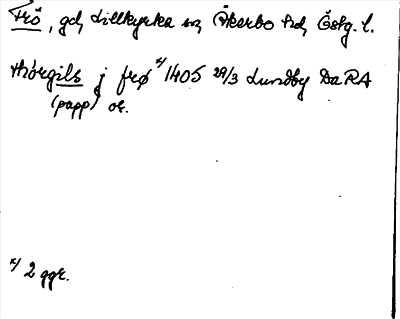 Frö, gd, Lillkyrka sn, Åkerbo hd, Östg. l.
thörgils j frø x/ 1405 29/3 Lundby DaRA
(papp) or.
x/ 2 ggr.